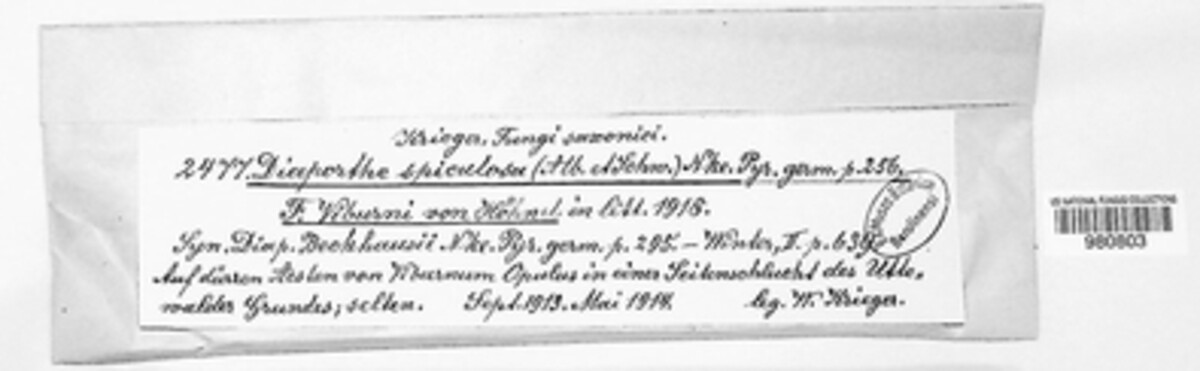 Krieger, Fungi saxonici.
2477. Diaporthe spiculosa (Alb. et Schw.) Nke. Pyr. germ. p. 256.
F. Viburni von Höhnel. in litt. 1915.
Syn. Diap. Beckhausii Nke. Pyr. germ. p. 295. – Winter, II. p. 639.
Auf dürren Aesten von Viburnum Opulus in einer Seitenschlucht des Utte-
walder Grundes; selten. Sept. 1913. Mai 1914. leg. W. Krieger.
US NATIONAL FUNGUS COLLECTIONS
980803